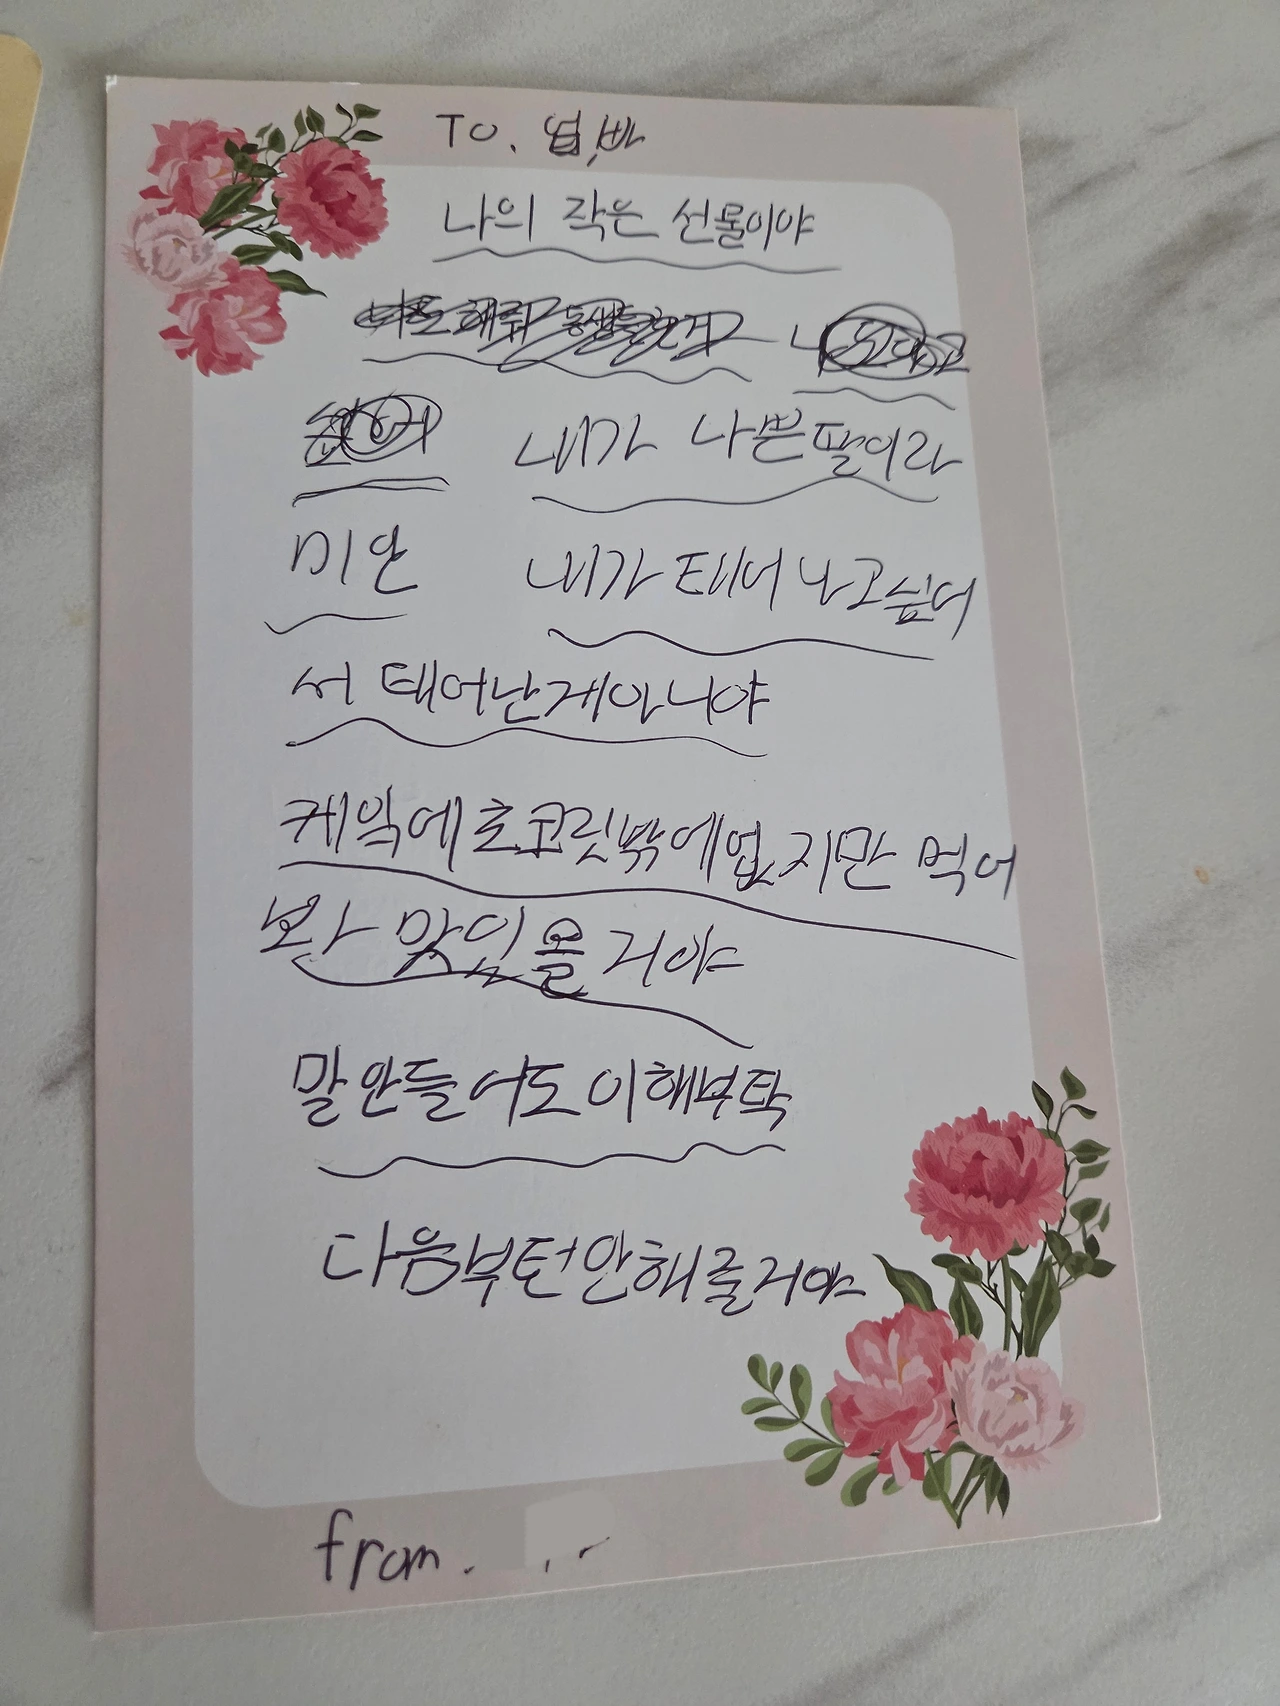 TO.
나의 작은 선물이야
내가 나쁜팔이라
미안 내가 태어나고싶어
서 태어난게아니야
케익에 초코릿밖에없지만 먹어
봐 맛있을거야
말안들어도 이해부탁
다음부턴안해줄거야
from.